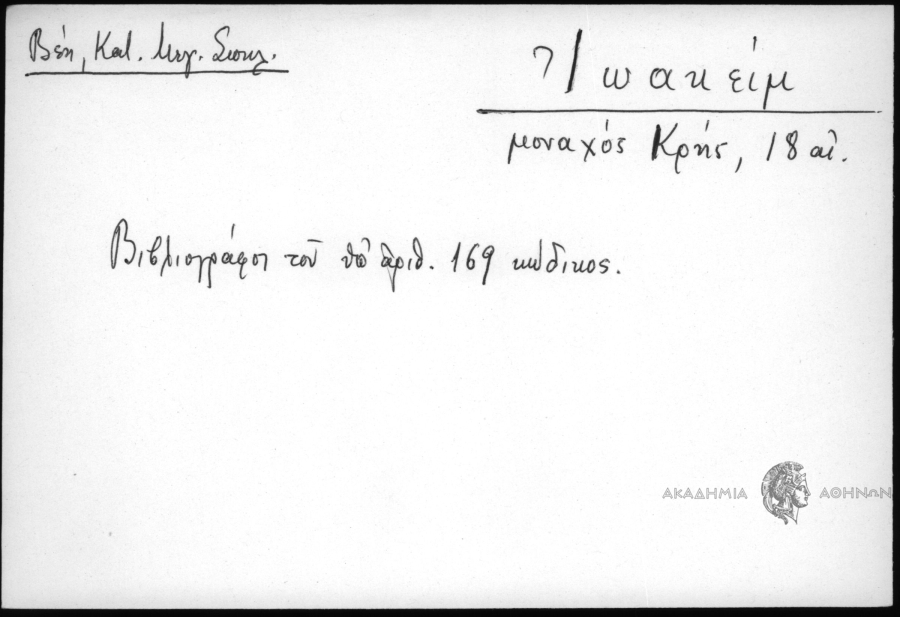 Βέη, Κατ. Μεγ. Σπηλ.
Ἰωακείμ
μοναχός Κρής, 18 αἰ.
Βιβλιογράφος τοῦ ὑπ' ἀριθ. 169 κώδικος.
ΑΚΑΔΗΜΙΑ ΑΘΗΝΩΝ